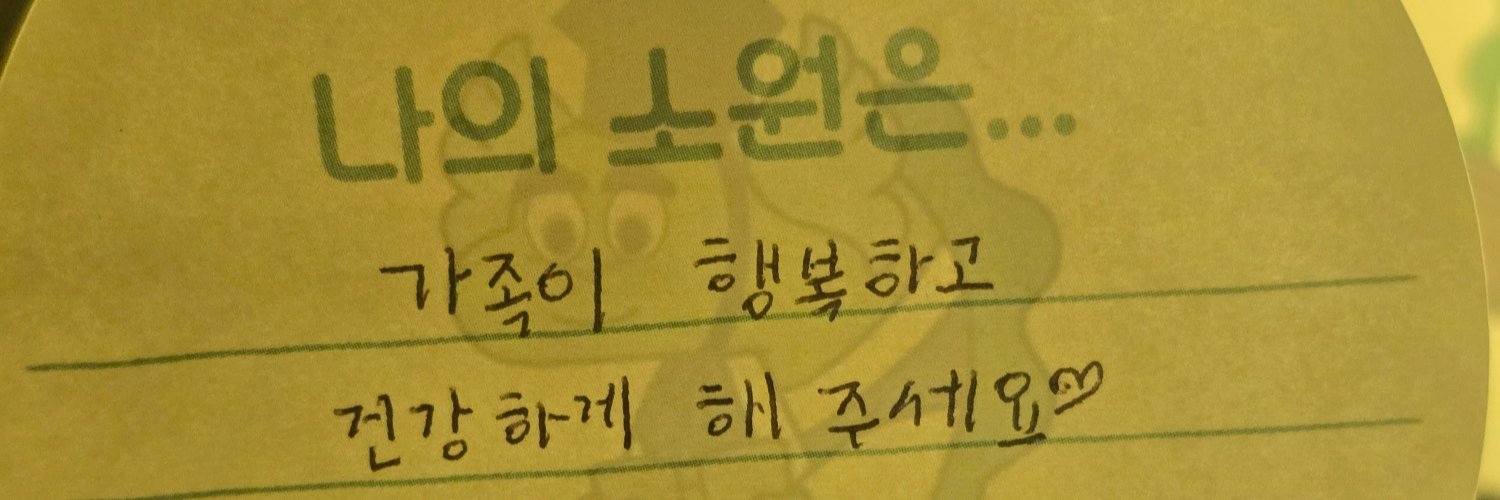 나의 소원은...
가족이 행복하고
건강하게 해 주세요♡